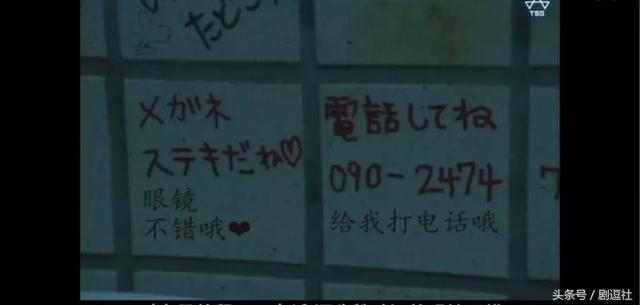 たどこ
TSG
メガネ
ステキだね♡
眼镜
不错哦❤
電話してね
090-2474
给我打电话哦
头条号 / 剧逗社